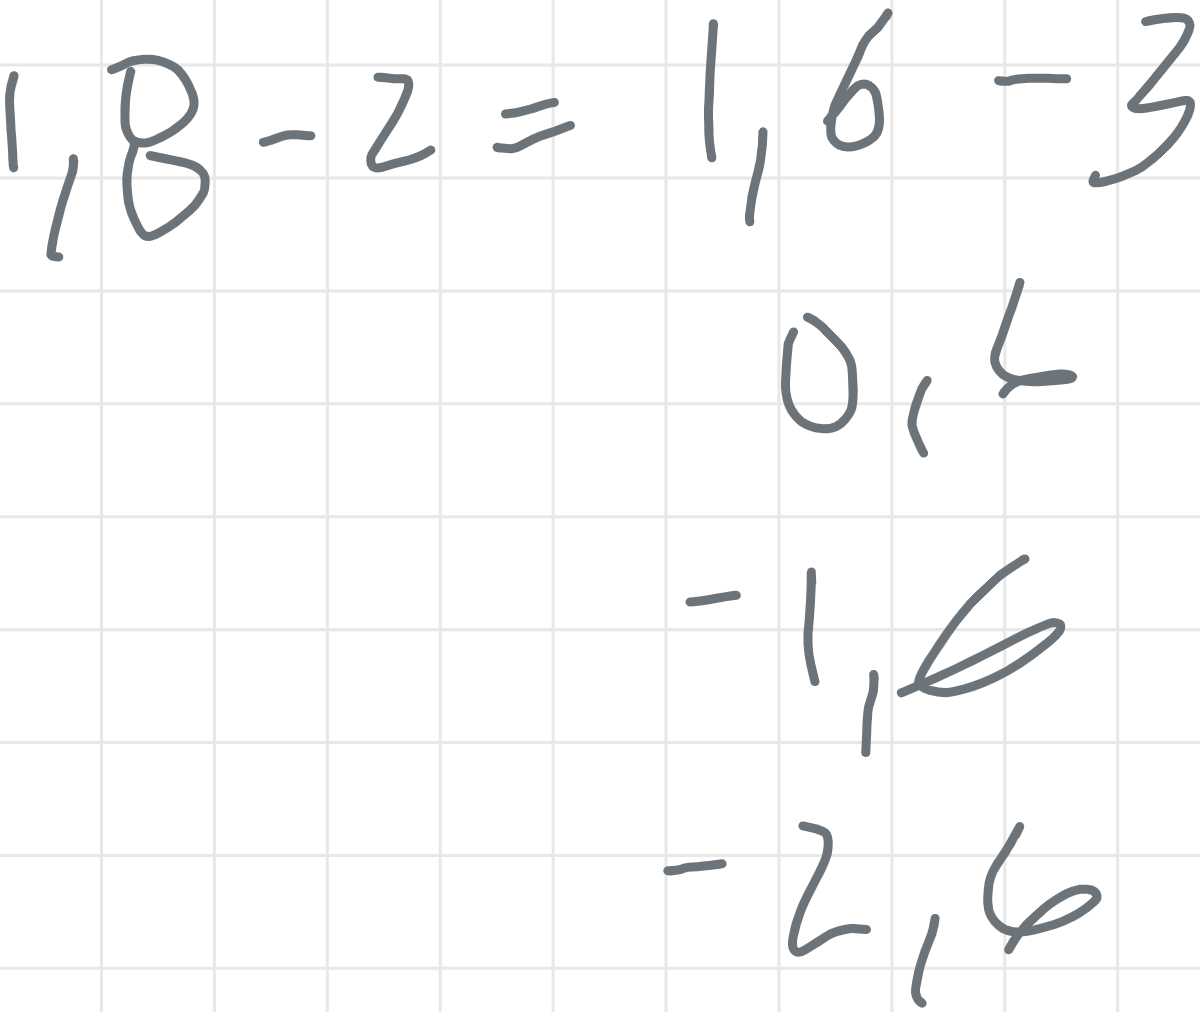 1,8 - 2 = 1,6 - 3
0,6
- 1,6
- 2,6